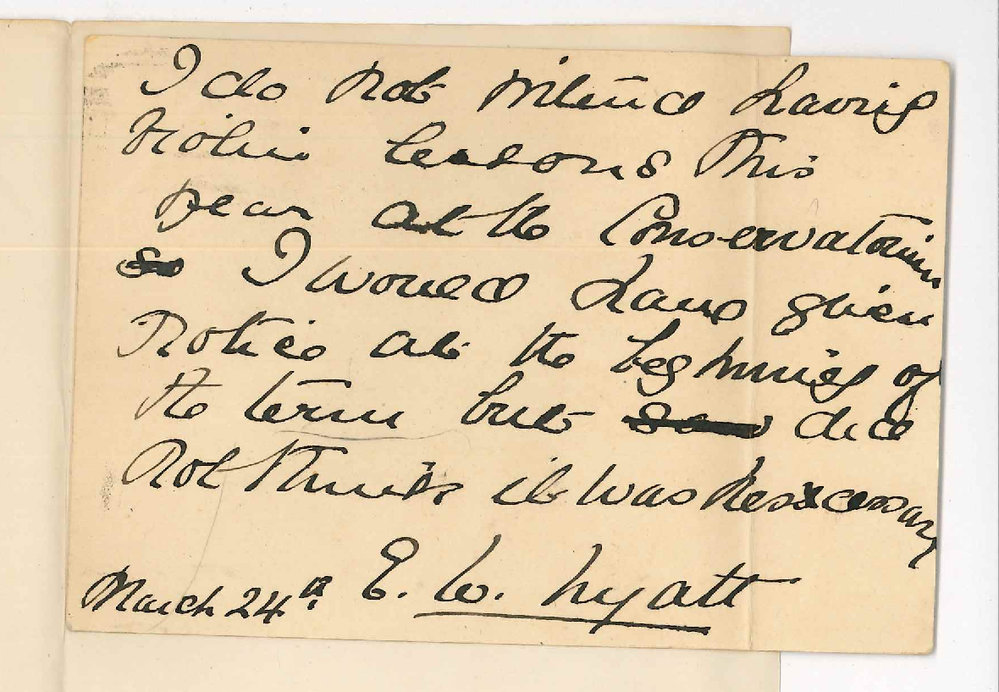 I do not intend having
violin lessons this
year at the Conservatorium
so I would have given
notice at the beginning of
the term but did
not think it was necessary
March 24th. E. W. Hyatt